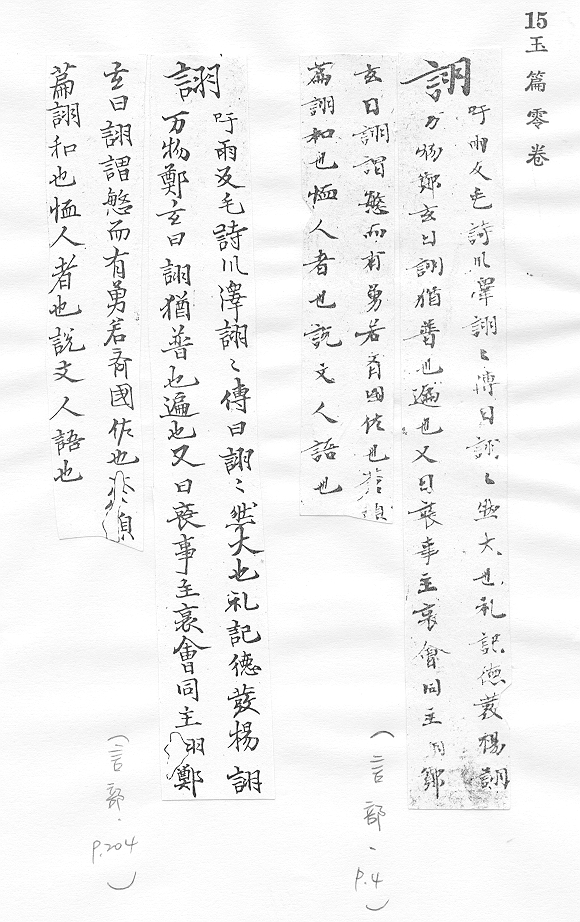 15
玉篇零卷
詡
吁雨反毛詩川澤詡〻傳曰詡〻然大也礼記德發楊詡
万物鄭玄曰詡猶普也遍也又曰喪事主哀會同主詡鄭
玄曰詡謂慜而有勇若齊國佐也蒼頡
篇詡和也恤人者也說文人語也
(言部、P.4)
詡
吁雨反毛詩川澤詡〻傳曰詡〻然大也礼記德發楊詡
万物鄭玄曰詡猶普也遍也又曰喪事主哀會同主羽鄭
玄曰詡謂慜而有勇若齊國佐也頡
篇詡和也恤人者也說文人語也
(言部、P.204)